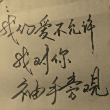 我的爱不允许
我对你
袖手旁观